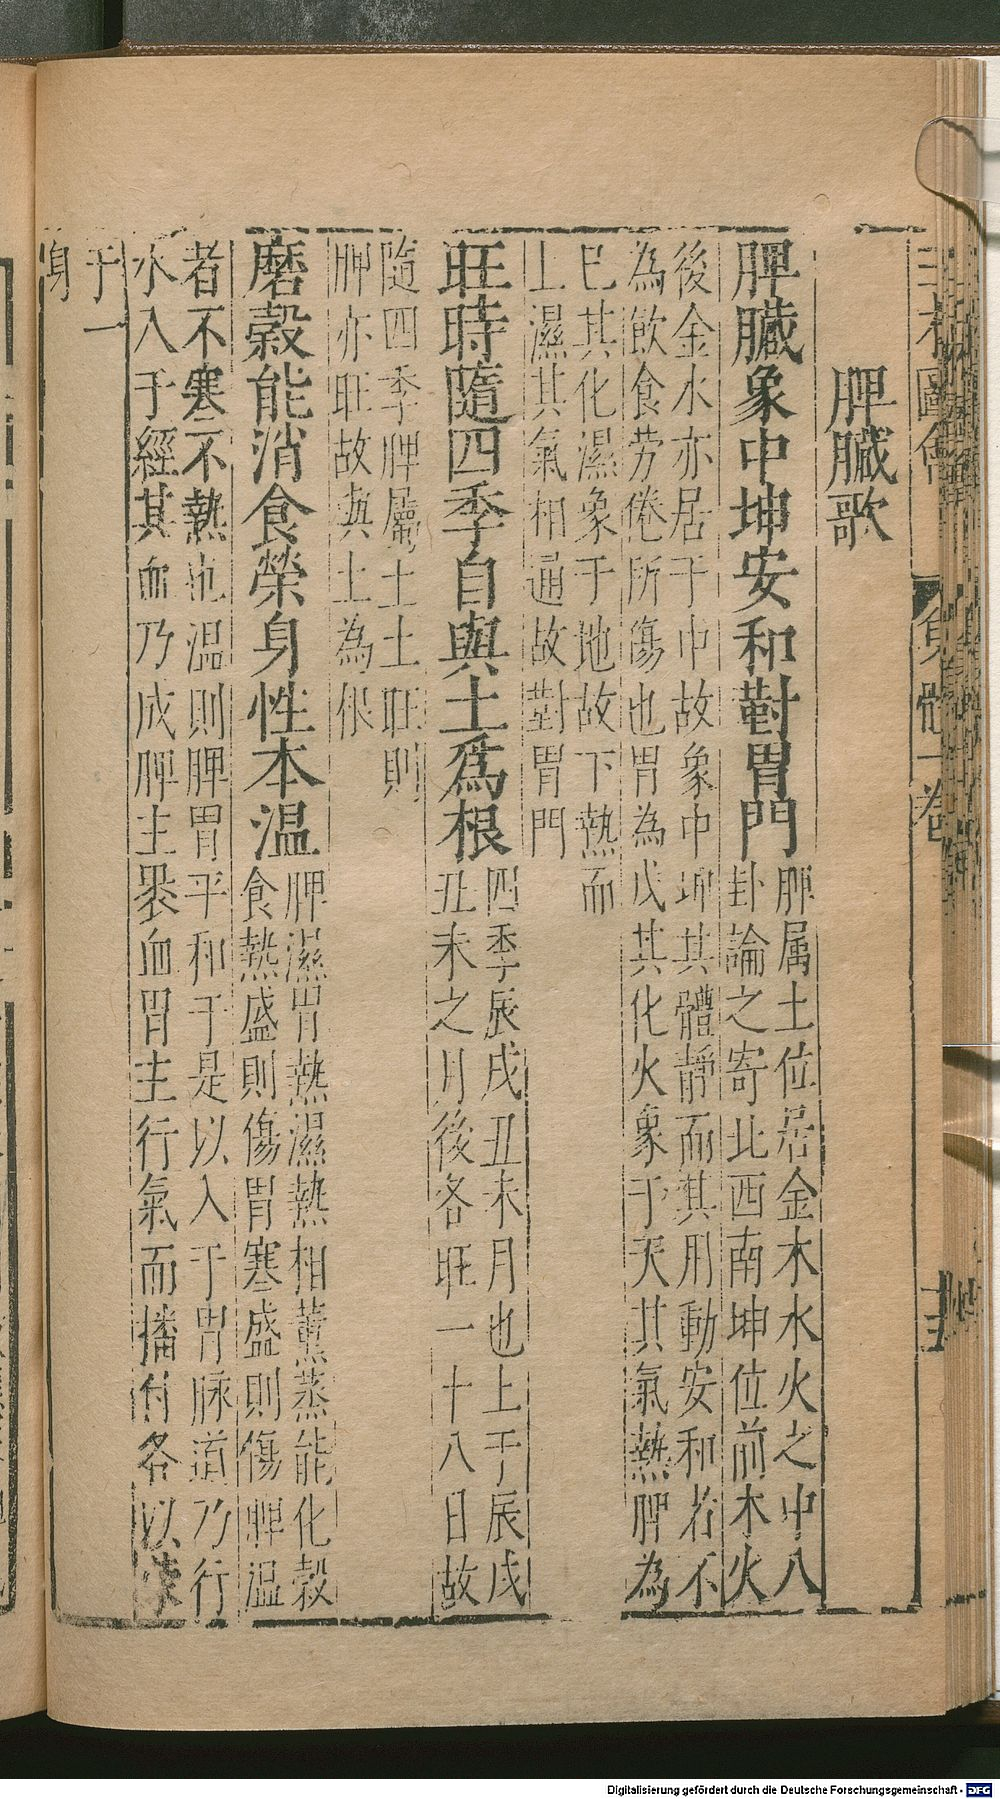 三才圖會
身體一卷
脾臟歌
脾臟象中坤安和對胃門
脾属土位居金木水火之中八
卦論之寄北西南坤位前木火
後金水亦居于中故象中坤其體靜而其用動安和若不
為飲食劳倦所傷也胃為戊其化火象于天其氣熱脾為
巳其化濕象于地故下熱而
上濕其氣相通故對胃門
旺時隨四季自與土為根
四季辰戌丑未月也上于辰戌
丑未之月後各旺一十八日故
隨四季脾屬土土旺則
脾亦旺故與土為根
磨穀能消食榮身性本温
脾濕胃熱濕熱相薰蒸能化穀
食熱盛則傷胃寒盛則傷脾温
者不寒不熱也温則脾胃平和于是以入于胃脉道乃行
水入于經其血乃成脾主褁血胃主行氣而播付各以
于一
身
Digitalisierung gefördert durch die Deutsche Forschungsgemeinschaft - DFG